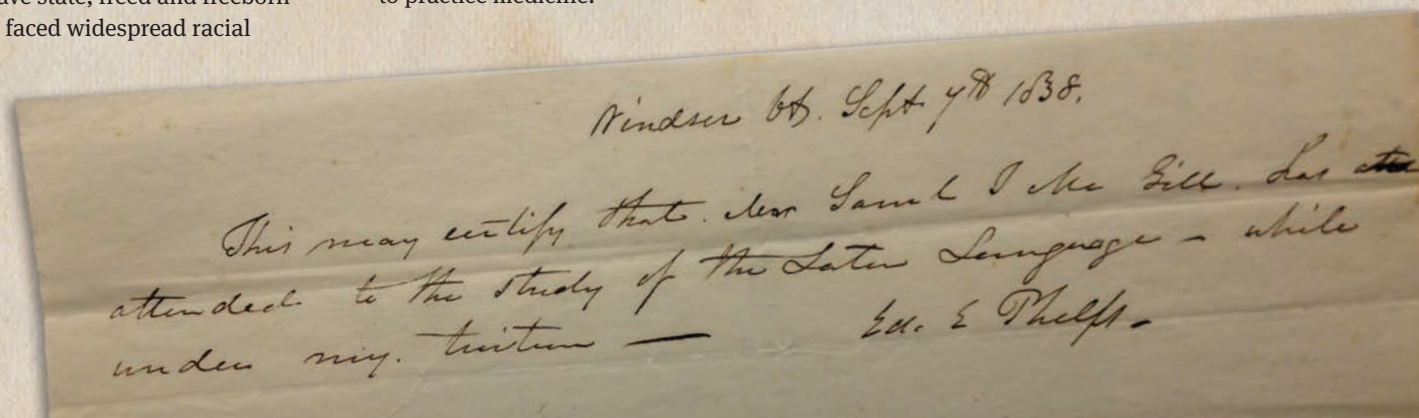 ave state, freed and freeborn
to practice medicine.
faced widespread racial
Windsor Vt. Sept 7th 1838.
This may certify that Samł J Mc Gill. has
attended to the study of the Latin Language - while
under my. tuition —
Ed. E Phelps.